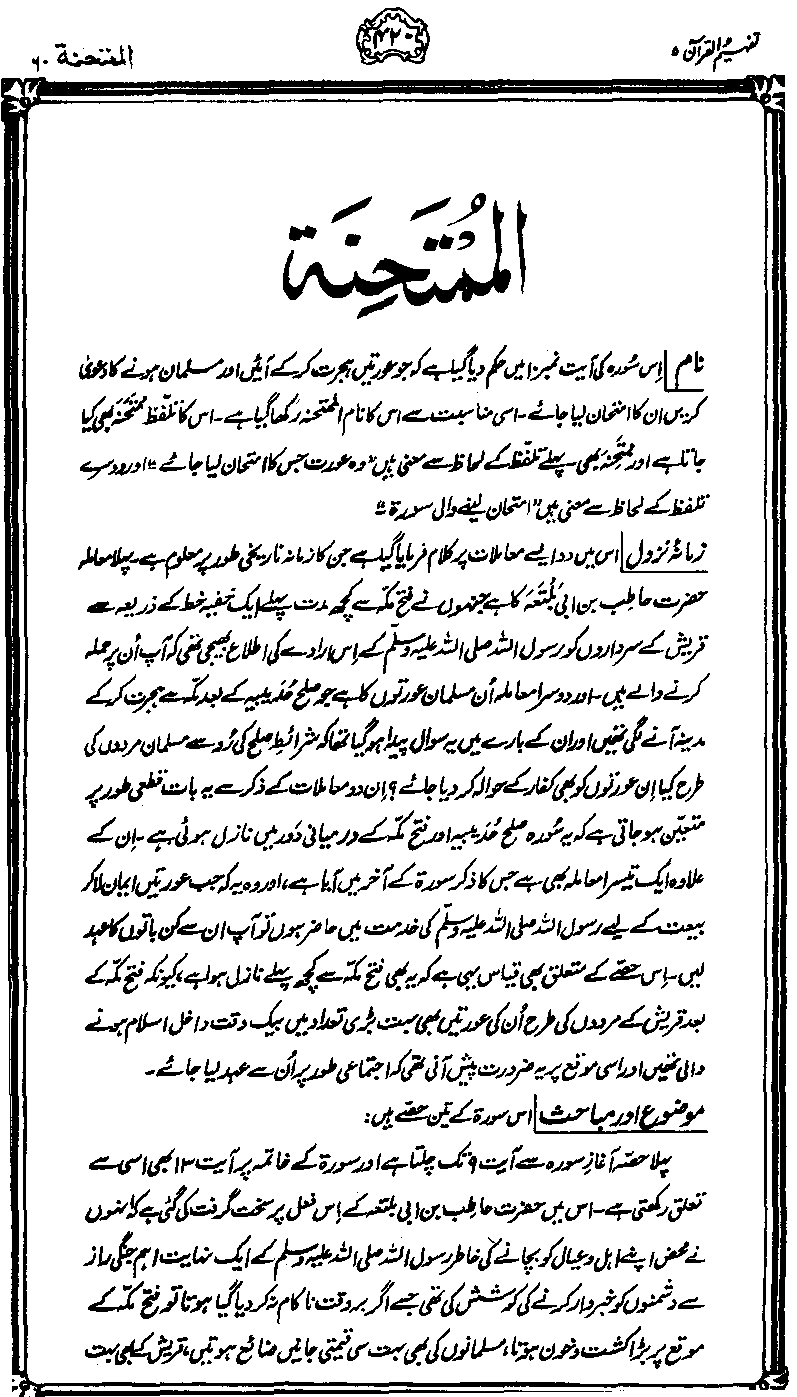 تفہیم القرآن ۵
۴۲۰
الممتحنۃ ۶۰
المُمْتَحِنَة
نام اِس سُورہ کی آیت نمبر۱۰ میں حکم دیا گیا ہے کہ جو عورتیں ہجرت کر کے آئیں اور مسلمان ہونے کا دعویٰ
کریں ان کا امتحان لیا جائے۔ اسی مناسبت سے اس کا نام الممتحنہ رکھا گیا ہے۔ اس کا تلفّظ مُمْتَحَنہ بھی کیا
جاتا ہے اور مُمْتَحِنہ بھی۔ پہلے تلفّظ کے لحاظ سے معنی ہیں "وہ عورت جس کا امتحان لیا جائے"۔ اور دوسرے
تلفظ کے لحاظ سے معنی ہیں "امتحان لینے والی سورۃ"۔
زمانۂ نزول اس میں دو ایسے معاملات پر کلام فرمایا گیا ہے جن کا زمانہ تاریخی طور پر معلوم ہے۔ پہلا معاملہ
حضرت حاطب بن ابی بَلْتَعَہ کا ہے جنہوں نے فتح مکّہ سے کچھ مدت پہلے ایک خفیہ خط کے ذریعہ سے
قریش کے سرداروں کو رسول اللہ صلی اللہ علیہ وسلّم کے اِس ارادے کی اطلاع بھیجی تھی کہ آپ اُن پر حملہ
کرنے والے ہیں۔ اور دوسرا معاملہ اُن مسلمان عورتوں کا ہے جو صلح حُدَیبیہ کے بعد مکّہ سے ہجرت کر کے
مدینہ آنے لگی تھیں اور ان کے بارے میں یہ سوال پیدا ہو گیا تھا کہ شرائطِ صلح کی رُو سے مسلمان مردوں کی
طرح کیا اِن عورتوں کو بھی کفار کے حوالہ کر دیا جائے؟ اِن دو معاملات کے ذکر سے یہ بات قطعی طور پر
متعیّن ہو جاتی ہے کہ یہ سُورہ صلح حُدَیبیہ اور فتح مکّہ کے درمیانی دَور میں نازل ہوئی ہے۔ اِن کے
علاوہ ایک تیسرا معاملہ بھی ہے جس کا ذکر سورۃ کے آخر میں آیا ہے، اور وہ یہ کہ جب عورتیں ایمان لا کر
بیعت کے لیے رسول اللہ صلی اللہ علیہ وسلّم کی خدمت میں حاضر ہوں تو آپ ان سے کن باتوں کا عہد
لیں۔ اِس حصّے کے متعلق بھی قیاس یہی ہے کہ یہ بھی فتح مکّہ سے کچھ پہلے نازل ہوا ہے، کیونکہ فتح مکّہ کے
بعد قریش کے مردوں کی طرح اُن کی عورتیں بھی بہت بڑی تعداد میں بیک وقت داخل اسلام ہونے
والی تھیں اور اسی موقع پر یہ ضرورت پیش آنی تھی کہ اجتماعی طور پر اُن سے عہد لیا جائے۔
موضوع اور مباحث اس سورۃ کے تین حصّے ہیں:
پہلا حصّہ آغازِ سورہ سے آیت ۹ تک چلتا ہے اور سورۃ کے خاتمہ پر آیت ۱۳ بھی اسی سے
تعلق رکھتی ہے۔ اس میں حضرت حاطب بن ابی بلتعہ کے اِس فعل پر سخت گرفت کی گئی ہے کہ انہوں
نے محض اپنے اہل و عیال کو بچانے کی خاطر رسول اللہ صلی اللہ علیہ وسلم کے ایک نہایت اہم جنگی راز
سے دشمنوں کو خبردار کرنے کی کوشش کی تھی جسے اگر بروقت ناکام نہ کر دیا گیا ہوتا تو فتح مکّہ کے
موقع پر بڑا کشت و خون ہوتا، مسلمانوں کی بھی بہت سی قیمتی جانیں ضائع ہوتیں، قریش کے بھی بہت